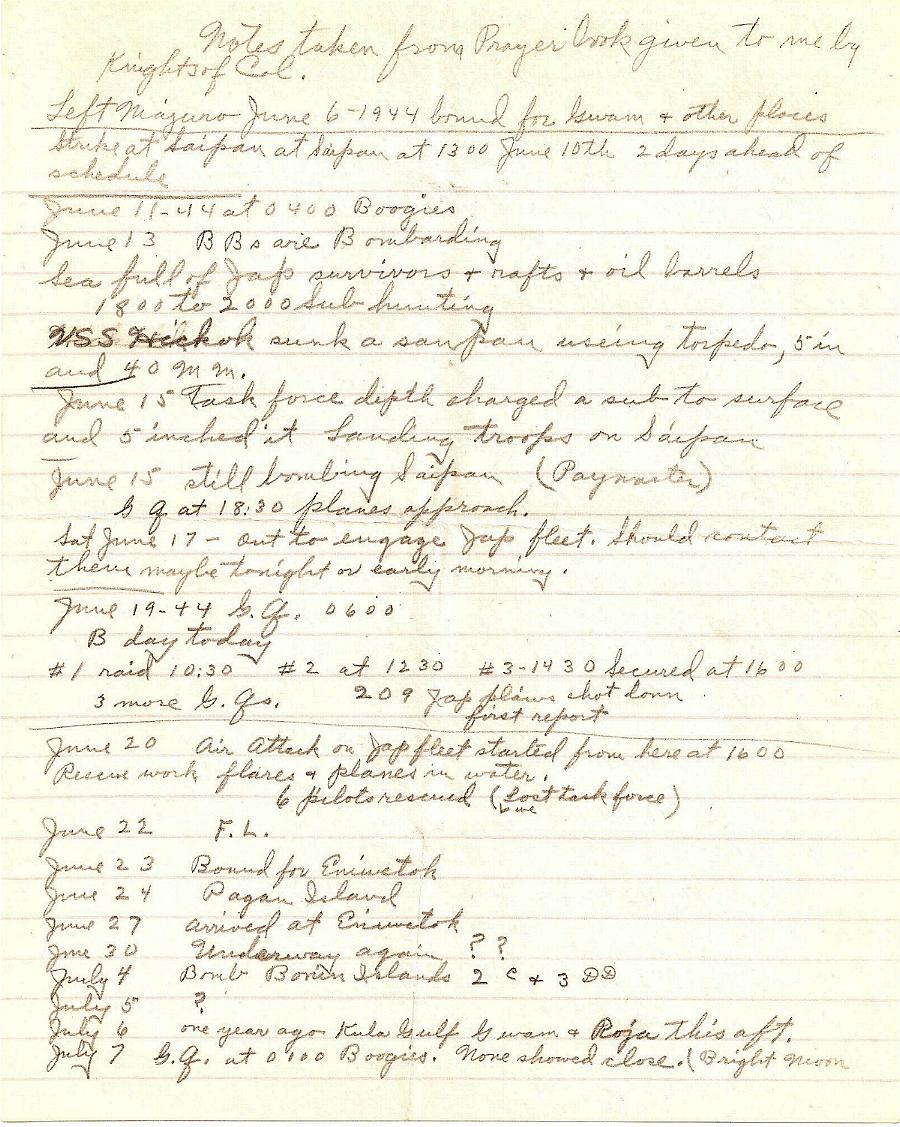 Notes taken from Prayer book given to me by
Knights of Col.
Left Majuro June 6-1944 bound for Gwam + other places
Strike at Saipan at Saipan at 1300 June 10th 2 days ahead of
schedule
June 11-44 at 0400 Boogies
June 13 BBs are Bombarding
Sea full of Jap survivors + rafts + oil barrels
1800 to 2000 Sub hunting
USS Hickok sunk a sanpan useing torpedo, 5 in
and 40 m m.
June 15 Task force depth charged a sub to surface
and 5 inched it Landing troops on Saipan
June 15 still bombing Saipan (Paymaster)
G Q at 18:30 planes approach.
Sat June 17 - out to engage Jap fleet. Should contact
them maybe tonight or early morning.
June 19-44 G.Q. 0600
B day today
#1 raid 10:30 #2 at 1230 #3-1430 Secured at 1600
3 more G.Qs. 209 Jap planes shot down
first report
June 20 Air Attack on Jap fleet started from here at 1600
Rescue work flares + planes in water.
6 pilots rescued (Lost task force)
we
June 22 F.L.
June 23 Bound for Eniwetok
June 24 Pagan Island
June 27 arrived at Eniwetok
Jme 30 Underway again ? ?
July 4 Bomb Bonin Islands 2 C + 3 DD
July 5 ?
July 6 one year ago Kula Gulf Gwam + Roja this aft.
July 7 G.Q. at 0100 Boogies. None showed close. (Bright Moon